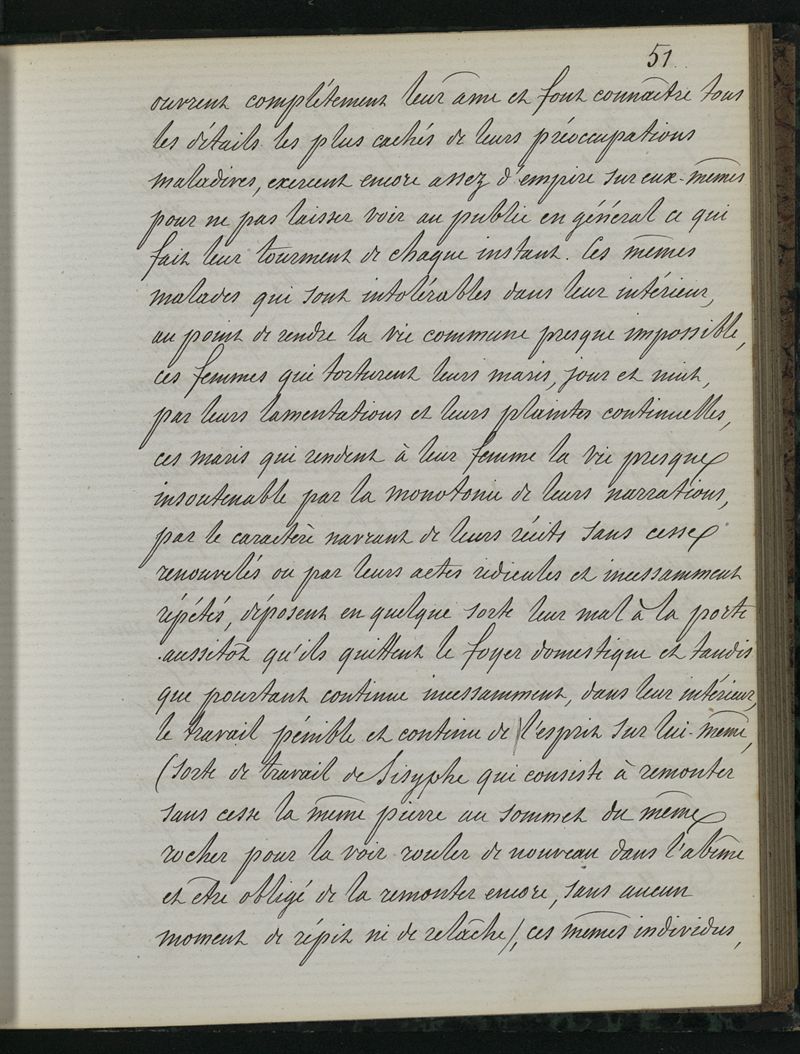 51
ouvrent complétement leur âme et font connaître tous
les détails les plus cachés de leurs préoccupations
maladives, exercent encore assez d'empire sur eux-mêmes
pour ne pas laisser voir au public en général ce qui
fait leur tourment de chaque instant. Ces mêmes
malades qui sont intolérables dans leur intérieur,
au point de rendre la vie commune presque impossible,
ces femmes qui torturent leurs maris, jour et nuit,
par leurs lamentations et leurs plaintes continuelles,
ces maris qui rendent à leur femme la vie presque
insoutenable par la monotonie de leurs narrations,
par le caractère navrant de leurs récits sans cesse
renouvelés ou par leurs actes ridicules et incessamment
répétés, déposent en quelque sorte leur mal à la porte
aussitôt qu'ils quittent le foyer domestique et tandis
que pourtant continue incessamment, dans leur intérieur,
le travail pénible et continu de l'esprit sur lui-même,
(sorte de travail de Sisyphe qui consiste à remonter
sans cesse la même pierre au sommet du même
rocher pour la voir rouler de nouveau dans l'abîme
et être obligé de la remonter encore, sans aucun
moment de répit ni de relâche), ces mêmes individus,